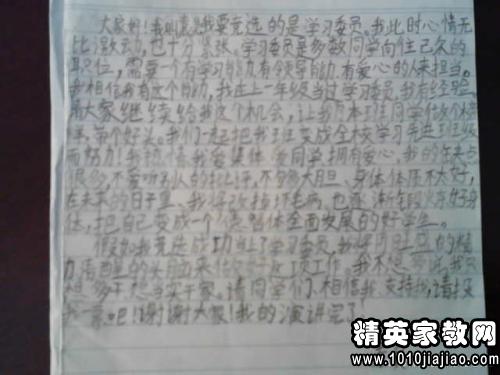 大家好！我叫袁 我要竞选的是学习委员。我此时心情无
比激动，也十分紧张。学习委员是多数同学向往已久的
职位，需要一个有学习能力有领导能力有爱心的人来担当。
我相信我有这个能力，我在上一年级当过学习委员，我有经验
请大家继续给我这个机会，让我为本班同学做个榜
样，带个好头。我们一起把我班变成全校学习先进班级
而努力！我热情我爱集体 爱同学 拥有爱心，我的缺点
很多，不爱听别人的批评，不够大胆、身体体质不太好，
在未来的日子里，我将改掉坏毛病，也逐渐锻炼好身
体，把自己变成一个德智体全面发展的好学生。
假如我竞选成功当上了学习委员，我将用 的精
力 的头脑来 这项工作。我不想
想多干想当实干家。请同学们、相信我，支持我，请投
我一票吧！谢谢大家！我的演讲完了！
精英家教网
www.1010jiajiao.com